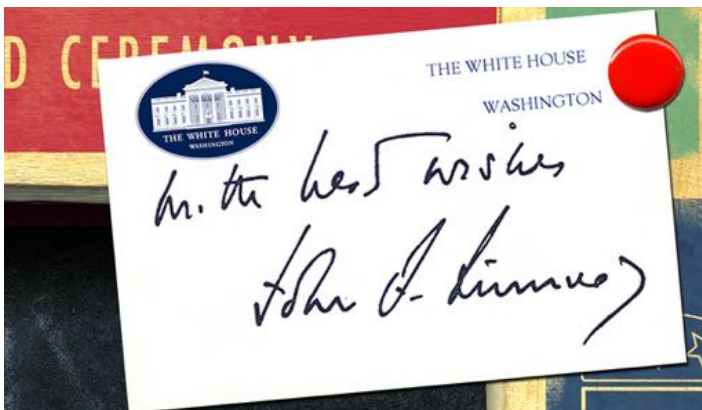 D CEREMONY
THE WHITE HOUSE
WASHINGTON
THE WHITE HOUSE
WASHINGTON
with best wishes
John F. Kennedy